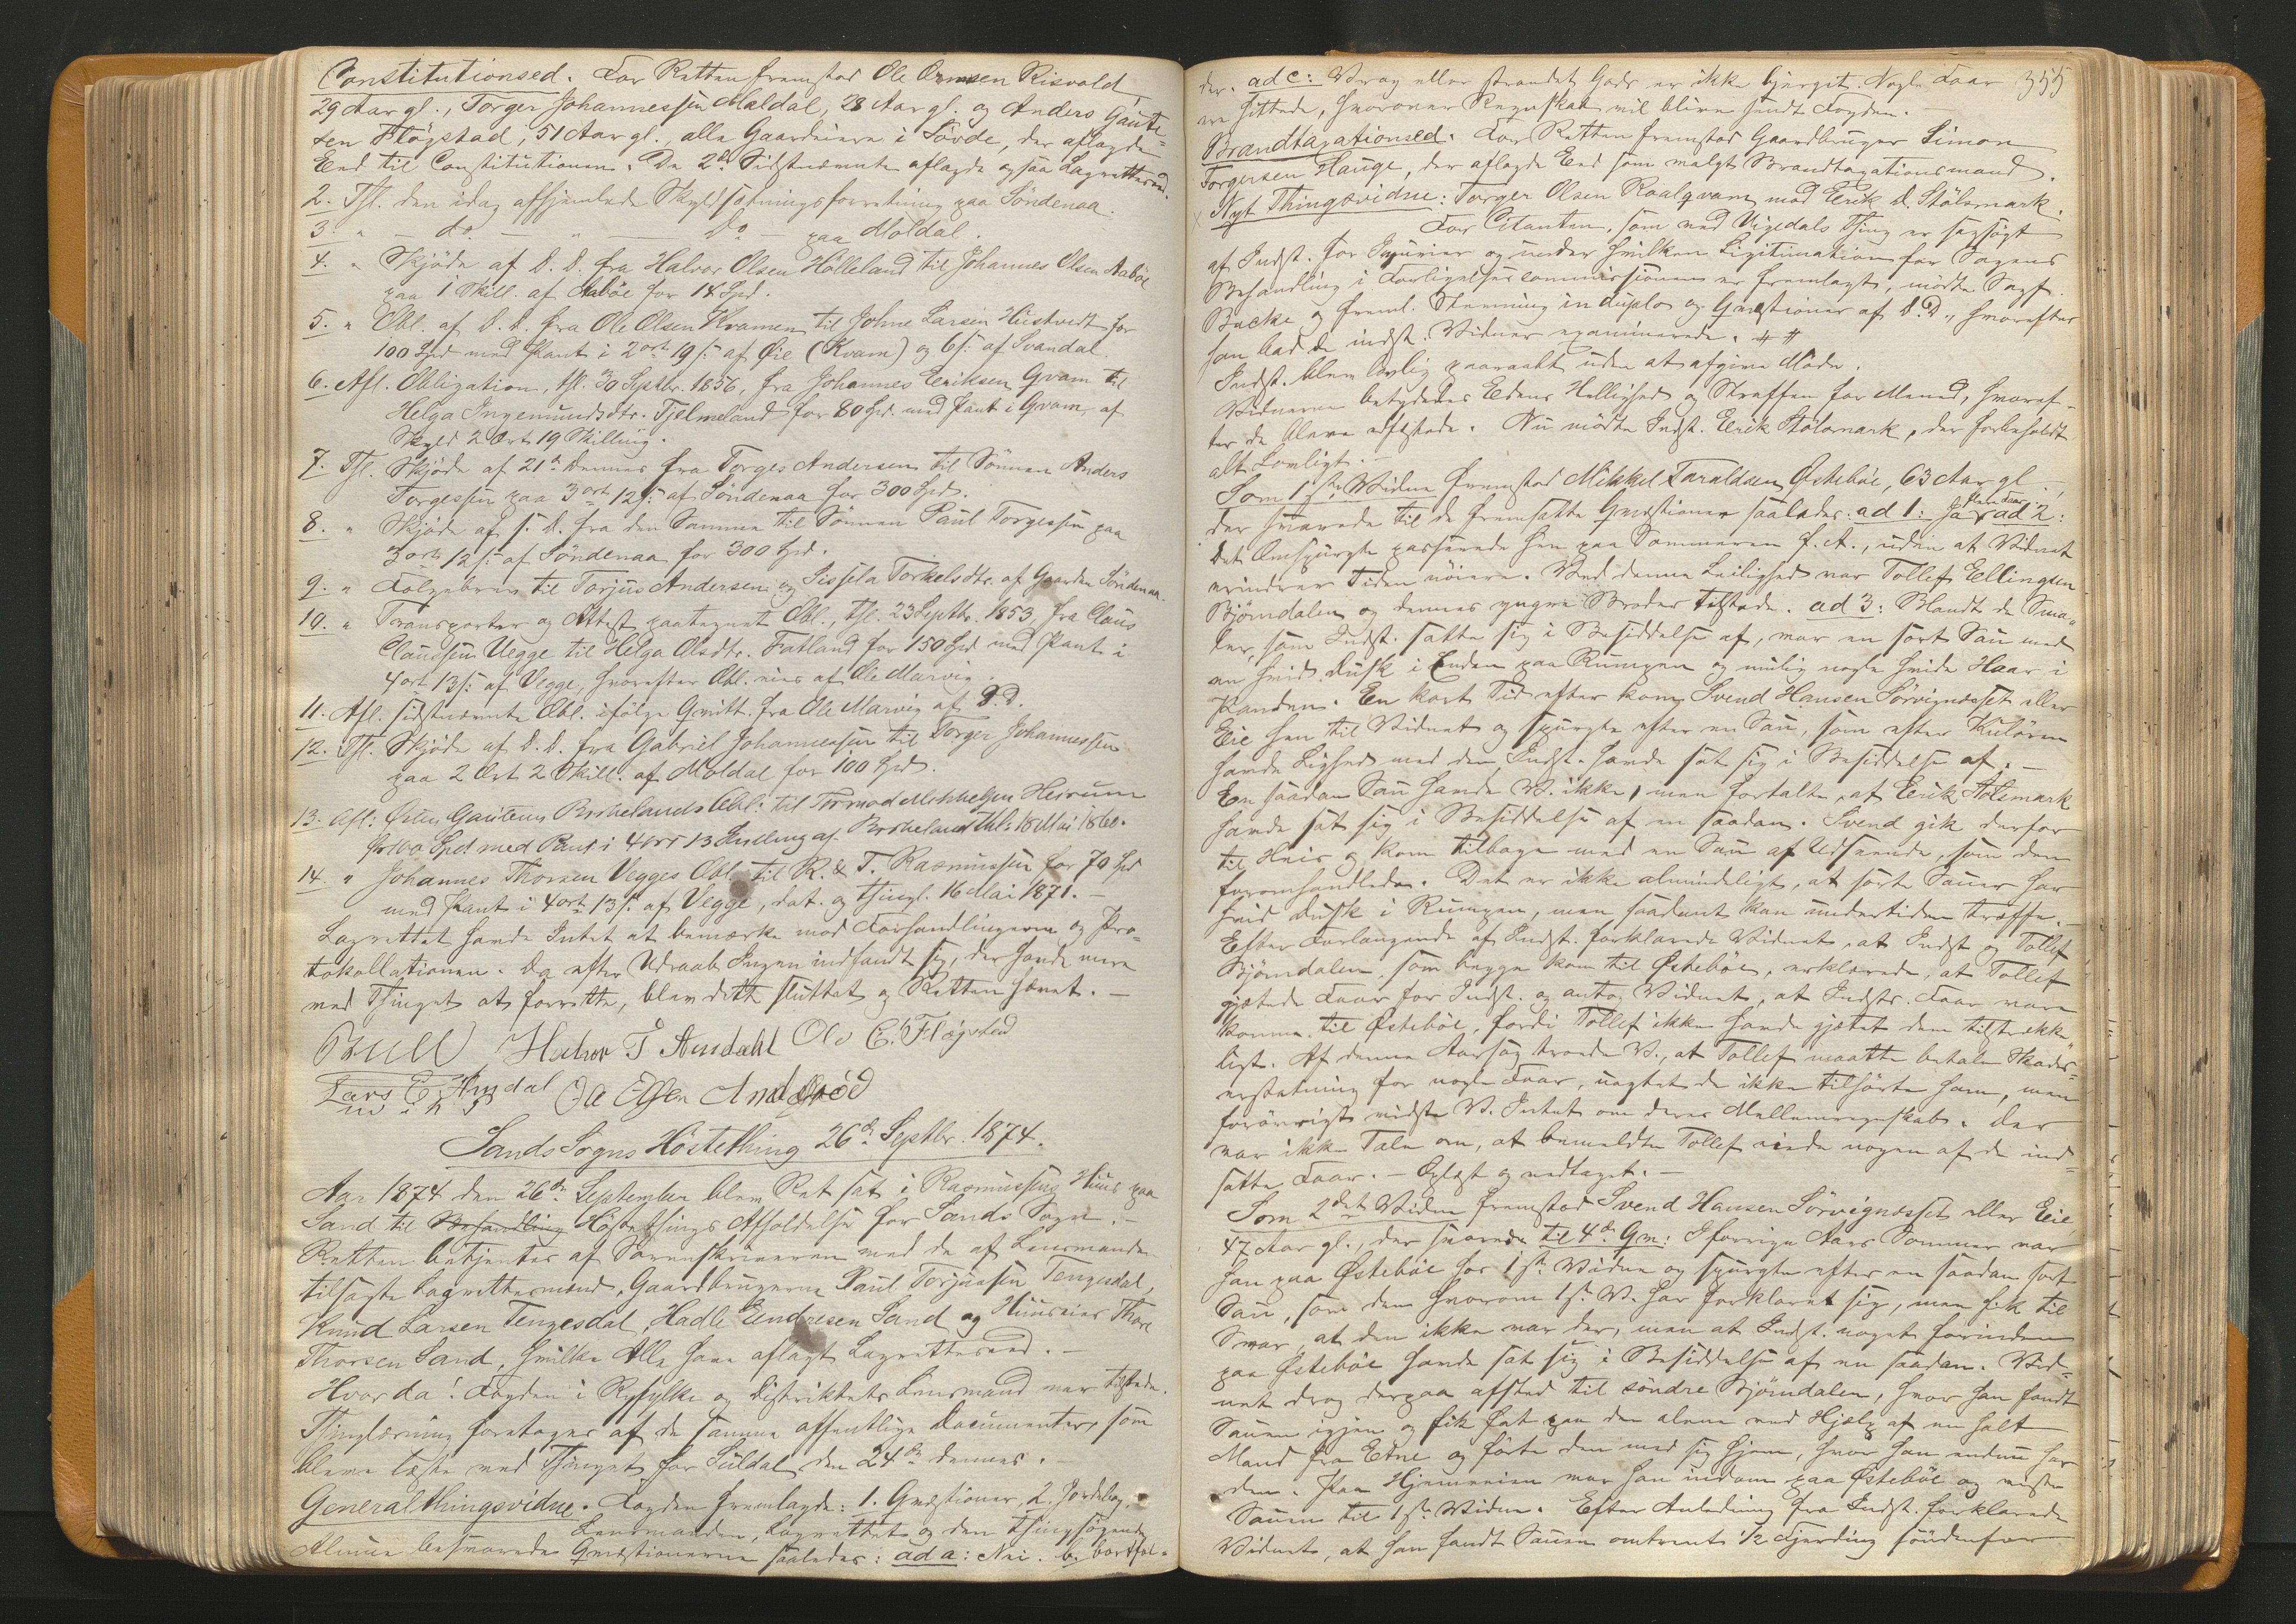 Constitutionsed. For Retten fremstod Ole Ormsen Risvold
29 Aar gl., Torger Johannessen Maldal, 28 Aar gl. og Anders Gaute-
sen Fløgstad, 51 Aar gl. alle Gaardeiere i Søvde, der aflagde
Eed til Constitutionen. De 2de Sidstnævnte aflagde ogsaa Lagrettesed.
2. Thl. den idag afhjemlede Skyldsætningsforretning paa Søndenaa.
3. " - do. - " - Do - paa Moldal.
4. " Skjøde af D. D. fra Halvor Olsen Hølleland til Johannes Olsen Aabøe
paa 1 Skill. af Aabøe for 14 Spd.
5. " Obl. af D. D. fra Ole Olsen Kvamen til Johne Larsen Hustvedt for
100 Spd med Pant i 2 ort 19 s. af Øie (Kvam) og 6 s. af Svandal.
6. Afl. Obligation, thl. 30 Septbr. 1856, fra Johannes Eeriksen Qvam til
Helga Ingemundsdtr. Tjelmeland for 80 Spd. med Pant i Qvam, af
Skyld 2 Ort 19 Skilling.
7. Thl. Skjøde af 21de Dennes fra Torges Andersen til Sønnen Anders
Torgessen paa 3 ort 12 s. af Søndenaa for 300 Spd.
8. " Skjøde af s. D. fra den Samme til Sønnen Paul Torgessen paa
3 ort 12 s. af Søndenaa for 300 Spd.
9. " Folgebrev til Torjus Andersen og Sissela Torkelsdtr. af Gaarden Søndenaa.
10. " Transporter og Attest paategnet Obl., thl. 23 Septbr. 1853, fra Claus
Claussen Vegge til Helga Olsdtr. Fatland for 150 Spd med Pant i
4 ort 13 s. af Vegge, hvorefter Obl. eies af Ole Marvig.
11. Afl. sidstnævnte Obl. ifølge Qvitt. fra Ole Marvig af D. D.
12. Thl. Skjøde af D. D. fra Gabriel Johannessen til Torger Johannessen
paa 2 Ort 2 Skill. af Moldal for 100 Spd.
13. Afl: Østen Gautens Birkelands Obl: til Tormod Mikkelsen Heirum
for 100 Spd med Pant i 4 ort 13 Skilling af Birkeland thl: 18 Mai 1860.
14. " Johannes Thorsen Vegges Obl. til R. & T. Rasmussen for 70 Spd
med Pant i 4 ort 13 s. af Vegge, dat. og thingl. 16 Mai 1871. -
Lagrettet havde Intet at bemærke mod Forhandlingerne og Pro-
tokollationen. Da efter Udraab Ingen indfandt sig, der havde mere
ved Thinget at forrette, blev dette sluttet og Retten hævet. -
Bull Halvor T Aendahl Ole E. Fløgsted
Lars E. Amdal Ola Elsen
Sands Sogns Høstething 26de Septbr. 1874.
Aar 1874 den 26de September blev Ret sat i Rasmussens Huus paa
Sand til Behandling Høstethings Afholdelse for Sands Sogn. -
Retten betjentes af Sorenskriveren med de af Lensmanden
tilsagte Lagrettesmænd, Gaardbrugerne Paul Torjussen Tengesdal,
Knud Larsen Tengesdal, Hadle Endresen Sand og Huuseier Thore
Thorsen Sand, hvilke Alle have aflagt Lagrettesed. -
Hvor da! Fogden i Ryfylke og Distriktets Lensmand var tilstede.
Thinglæsning foretages af de samme offentlige Documenter, som
bleve læste ved Thinget for Suldal den 24de dennes. -
Generalthingsvidne. Fogden fremlagde: 1. Qvæstioner, 2. Jordebog.
Lensmanden, Lagrettet og den thingsøgende
Almue besvarede Qvæstionerne saaledes: ad a: Nei. b. bortfal-
355
der. ad c: Vrag eller strandet Gods er ikke bjerget. Nogle Faar
ere hittede, hvorover Regnskab vil blive sendt Fogden.
Brandtaxationsed. For Retten fremstod Gaardbruger Simon
Torgersen Hauge, der aflagde Eed som valgt Brandtaxationsmand.
Nyt Thingsvidne: Torger Olsen Roalqvam mod Erik D. Stølsmark.
For Citanten, som ved Vigedals Thing er sagsøgt
af Indst. for Injurier og under hvilken Legitimation for Sagens
Behandling i Forligelsescommissionen er fremlagt, mødte Sagf.
Bucke og freml. Stevning in duplo og Qvæstioner af D. D., hvorefter
han bad de indst. Vidner examinerede. #
Indst. blev lovlig paaraabt uden at afgive Møde.
Vidnerne betydedes Edens Hellighed og Straffen for Mened, hvoref-
ter de bleve edfæstede. Nu mødte Indst. Erik Stølsmark, der forbeholdt
alt Lovligt. -
Som 1ste Vidne fremstod Mikkel Taraldsen Østebøe, 63 Aar gl.,
der svarede til de fremsatte Qvæstioner saaledes: ad 1: Ja, ad 2:
Det Omspurgte passerede hen paa Sommeren f. A., uden at Vidnet
erindrer Tiden nøiere. Ved denne Leilighed var Tollef Ellingsen
Bjørndalen og dennes yngre Broder tilstede. ad 3: Blandt de Sma-
ler, som Indst. satte sig i Besiddelse af, var en sort Sau med
en hvid Dusk i Enden paa Rumpen og mulig nogle hvide Haar i
Panden. En kort Tid efter kom Svend Hansen Sørvignæsset eller
Eie hen til Vidnet og spurgte efter en Sau, som efter Kuløren
havde Lighed med den Indst. havde sat sig i Besiddelse af. -
En saadan Sau havde V. ikke, men fortalte, at Erik Stølsmark
havde sat sig i Besiddelse af en saadan. Svend gik derfor
til Heis og kom tilbage med en Sau af Udseende, som den
foromhandlede. Det er ikke almindeligt, at sorte Sauer har
hvid Dusk i Rumpen, men saadant kan undertiden træffe. -
Efter Forlangende af Indst. forklarede Vidnet, at Indst. og Tollef
Bjørndalen, som begge kom til Østebøe, erklærede, at Tollef
gjætede Faar for Indst. og antog Vidnet, at Indsts. Faar vare
komne til Østebøe, fordi Tollef ikke havde gjætet dem tilstrække-
ligt. Af denne Aarsag troede V., at Tollef maatte betale Skades-
erstatning for nogle Faar, uagtet de ikke tilhørte ham, men
forøvrigt vidste V. Intet om deres Mellemregnskab. Der
var ikke Tale om, at bemeldte Tollef eiede nogen af de ind-
satte Faar. - Oplæst og vedtaget. -
Som 2det Vidne fremstod Svend Hansen Sørvignæsset eller Eie,
47 Aar gl., der svarede til 4de Qm: I forrige Aars Sommer var
han paa Østebøe hos 1ste Vidne og spurgte efter en saadan sort
Sau, som den hvorom 1ste V. har forklaret sig, men fik til
Svar, at den ikke var der, men at Indst. noget forinden
paa Østebøe havde sat sig i Besiddelse af en saadan. Vid-
net drog derpaa afsted til søndre Bjørndalen, hvor han fandt
Sauen igjen og fik fat paa den alene ved Hjælp af en halt
Mand fra Etne og førte den med sig hjem, hvor han endnu har
den. Paa Hjemveien var han indom paa Østebøe og viste
Sauen til 1ste Vidne. Efter Anledning fra Indst. forklarede
Vidnet, at han fandt Sauen omtrent 1/2 Fjerding søndenfor